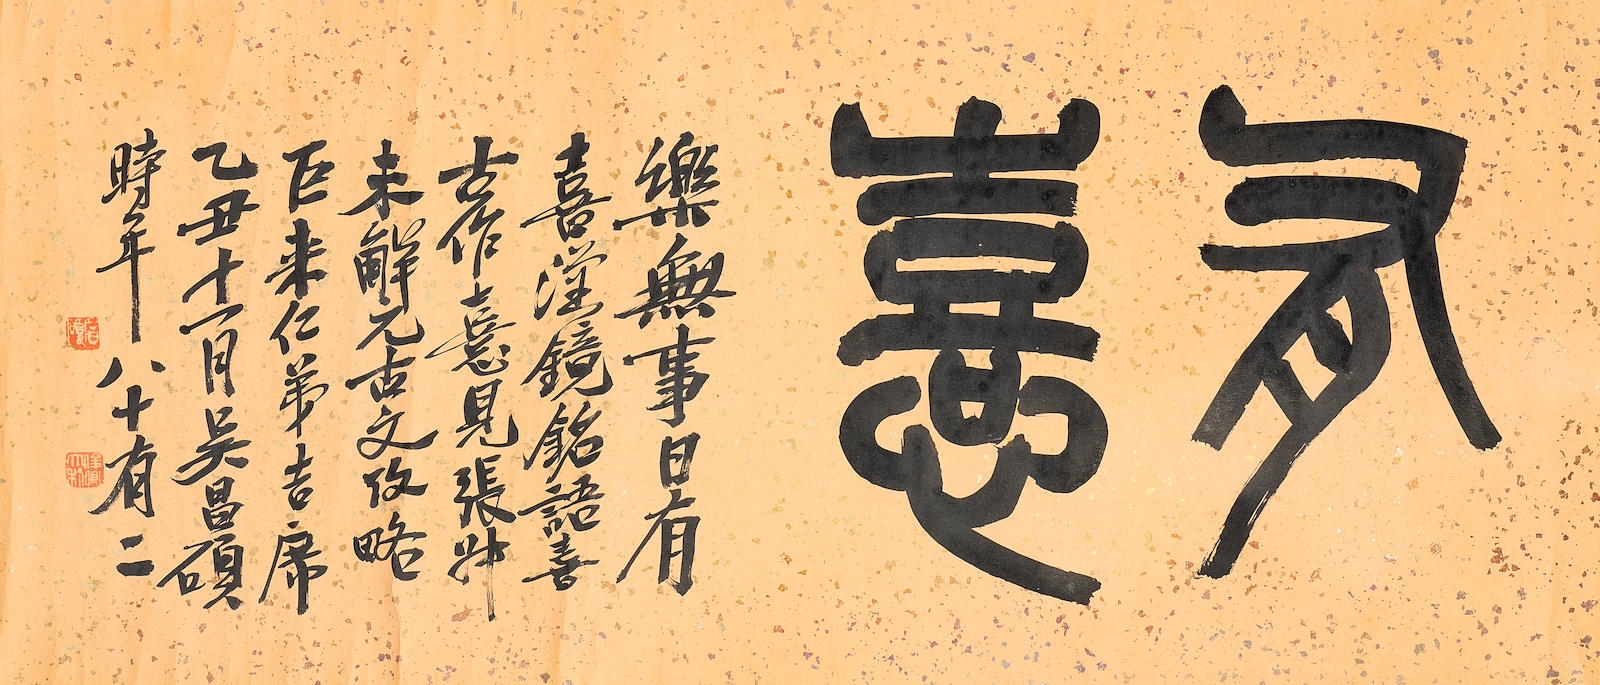 有憙
樂無事日有
喜漢鏡銘語喜
古作憙見張尗
未解元古文攷略
巨來仁弟吉席
乙丑十一月吴昌碩
時年八十有二